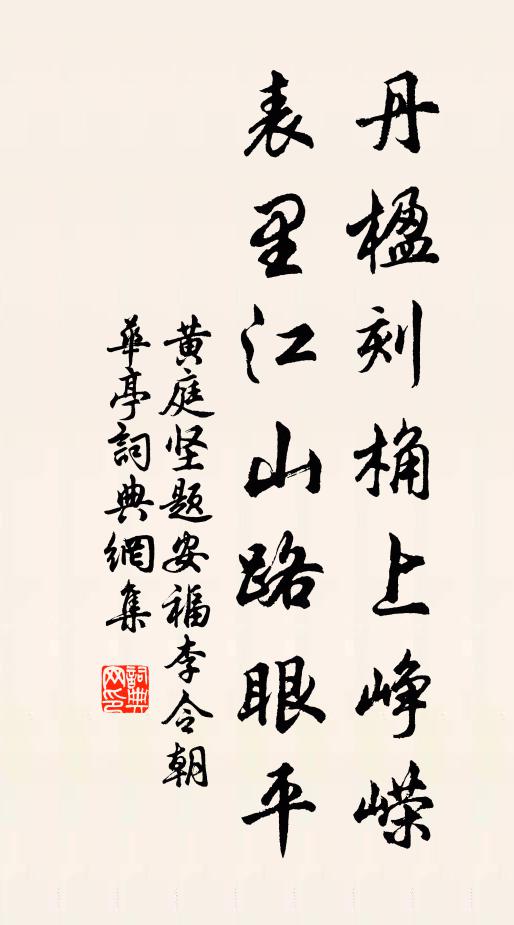 丹楹刻桷上峥嵘
表里江山路眼平
黄庭坚题安福李令朝
華亭詞典網集
詞典
网印